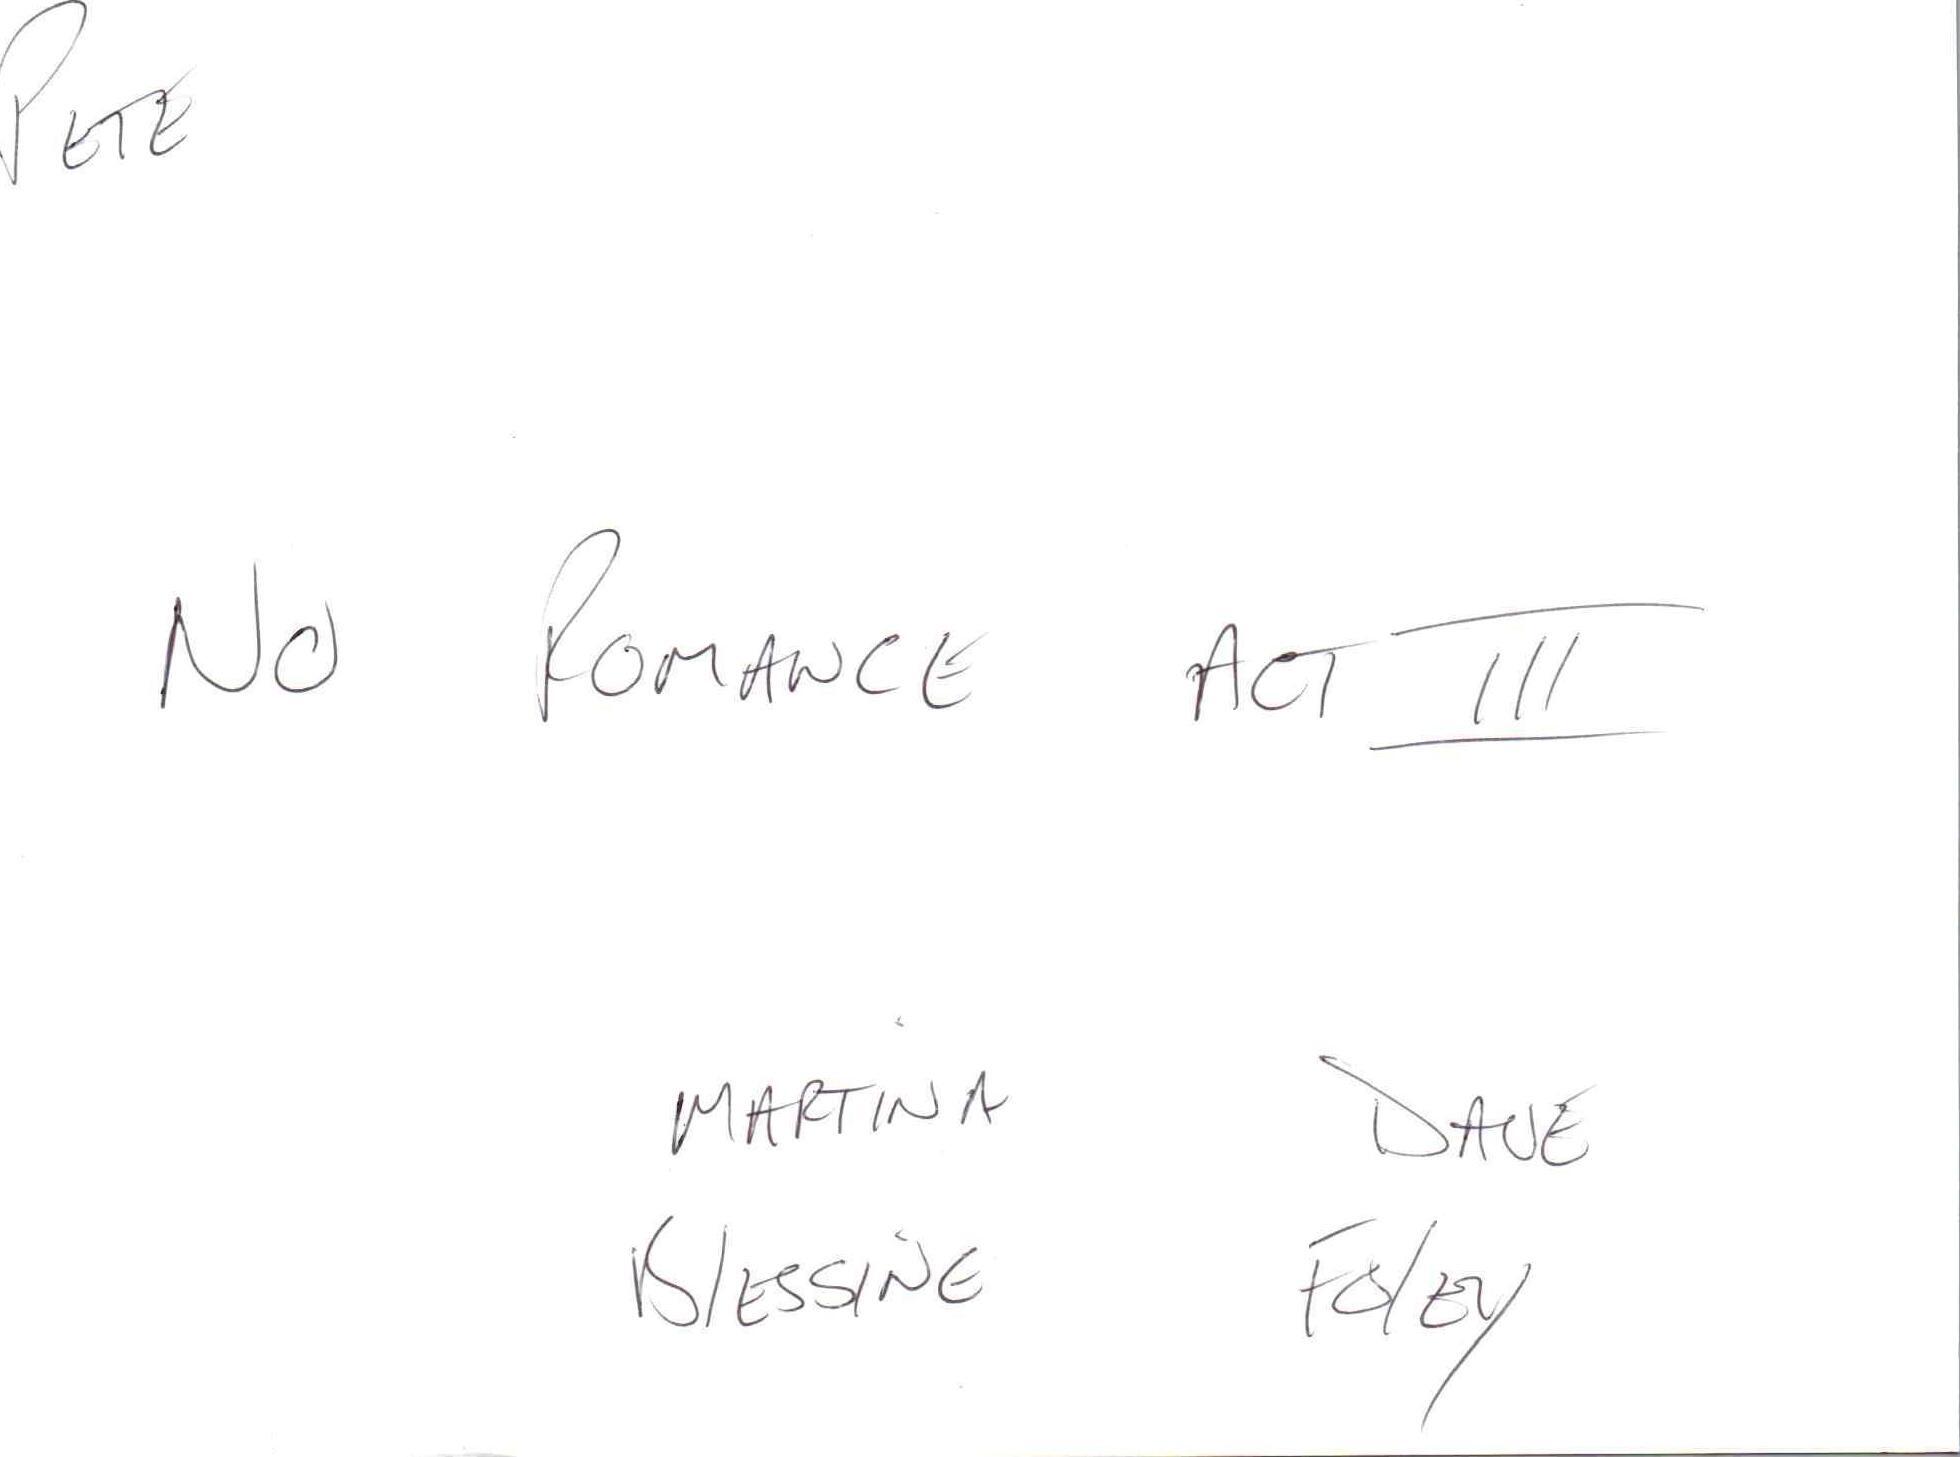 PETE
NO ROMANCE ACT III
MARTINA DAVE
BlESSINE FOlEY